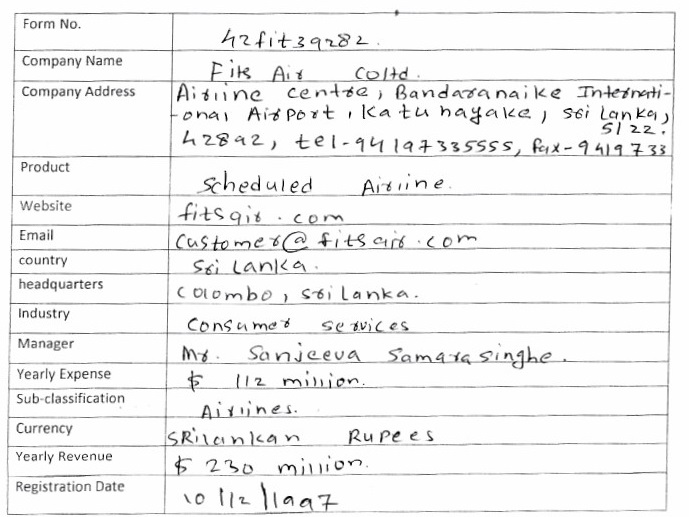 Form No.
42fit39282.
Company Name
Fits Air Coltd.
Company Address
Airline centre, Bandaranaike Internati-
-onal Airport, Katunayake, sri Lanka,
5122.
42892, tel-94197335555, fax-9419733
Product
Scheduled Airline.
Website
fitsair.com
Email
customer@fitsair.com
country
Sri Lanka.
headquarters
Colombo, sri Lanka.
Industry
Consumer services
Manager
Mr. Sanjeeva Samarasinghe.
Yearly Expense
$ 112 million.
Sub-classification
Airlines.
Currency
SRilankan Rupees
Yearly Revenue
$ 230 million.
Registration Date
10/12/1997